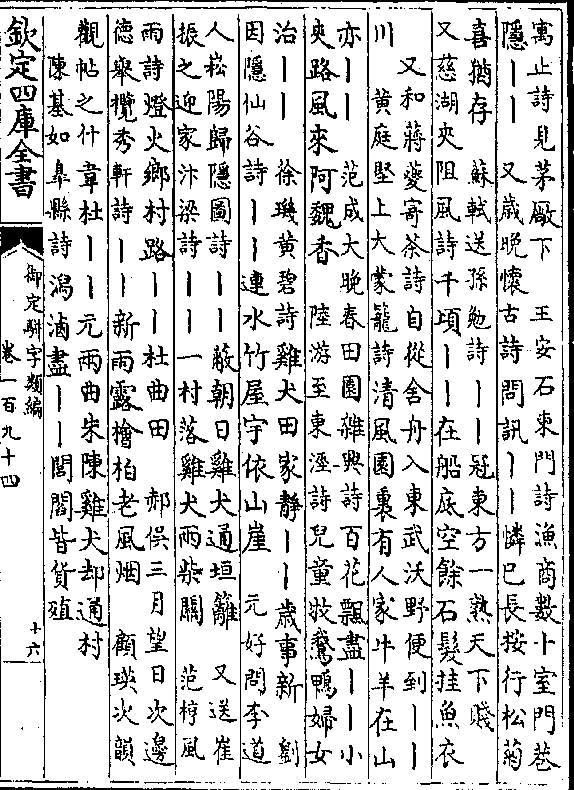 寓止詩見茅厰下　王安石東門詩漁商數十室門巷
隱丨丨　又歲晚懷古詩問訊丨丨憐已長按行松菊
喜猶存　蘇軾送孫勉詩丨丨冠東方一熟天下賤
又慈湖夾阻風詩千頃丨丨在船底空餘石髮挂魚衣
又和蔣夔寄茶詩自從舍舟入東武沃野便到丨丨
川　黄庭堅上大蒙籠詩清風園裏有人家牛羊在山
亦丨丨　范成大晚春田園雜興詩百花飄盡丨丨小
夾路風來阿魏香　陸游至東涇詩兒童牧鵞鴨婦女
治丨丨　徐璣黄碧詩雞犬田家静丨丨歲事新　劉
因隱仙谷詩丨丨連水竹屋宇依山崖　元好問李道
人崧陽歸隱圖詩丨丨蔽朝日雞犬通垣籬　又送崔
振之迎家汴梁詩丨丨一村落雞犬兩柴關　范梈風
雨詩燈火鄉村路丨丨杜曲田　郝俣三月望日次邊
德舉攬秀軒詩丨丨新雨露檜柏老風烟　顧瑛次韻
觀帖之什韋杜丨丨元兩曲朱陳雞犬却通村
陳基如臯縣詩潟滷盡丨丨閭閻皆貨殖
欽定四庫全書
御定駢字類編
卷一百九十四
十六